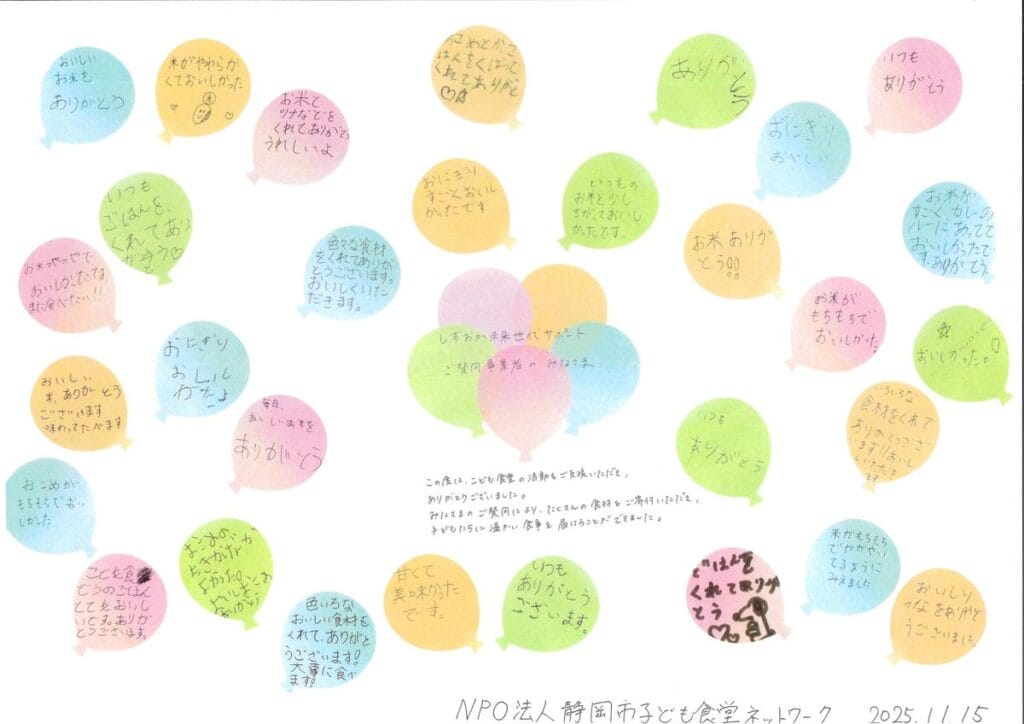 おいしい
お米を
ありがとう
米がやわらか
くておいしかった
お米と
ツナなどを
くれてありがとう
うれしいよ
おこめとかご
はんをくばって
くれてありがと
ありがとう
いつも
ありがとう
おにぎり
おいしい
いつも
ごはんを、
くれてあり
がとう♡
おにぎり
すごくおいし
かったです
いつもの
お米と少し
ちがっておいし
かたです。
お米がつやつやで
おいしかったでば
また食べたい!!
色々な食材
をくれてありが
とうございます。
おいしくいた
だきます。
お米ありが
とう!!
お米が
すごくカレーの
ルーにあってて
おいしかったで
す。ありがとう。
しずおか未来世代サポート
ご賛同事業者のみなさま
お米が
もちもちで
おいしかった。
おいしかった。
おにぎり
おしル
かたよ
おいしい
米、ありがとう
ございます
味わってたべます
毎日、
おいしいお米を
ありがとう
いつも
ありがとう
いろいろな
食材をくれて
ありがとうござ
います!おいし
くいただきま
す
おこめが
もちもちでおい
しかった
この度は、こども食堂の活動をご支援いただき、
ありがとうございました。
みなさまのご賛同により、たくさんの食材をご寄付いただき、
子どもたちに温かい食事を届けることができました。
こども食
どうのごはん
とてもおいし
いです。ありが
とうございます。
よかった。
色いろな
おいしい食材を
くれて、ありがと
うございます!
大事に食べ
ます!
甘くて
美味かった
です。
いつも
ありがとう
ございます。
ごはんを
くれてありが
とう
米がもちもち
でかがやい
てるように
みえました
おいしい
つなをありがと
うございました。
NPO法人静岡市子ども食堂ネットワーク 2025.11.15